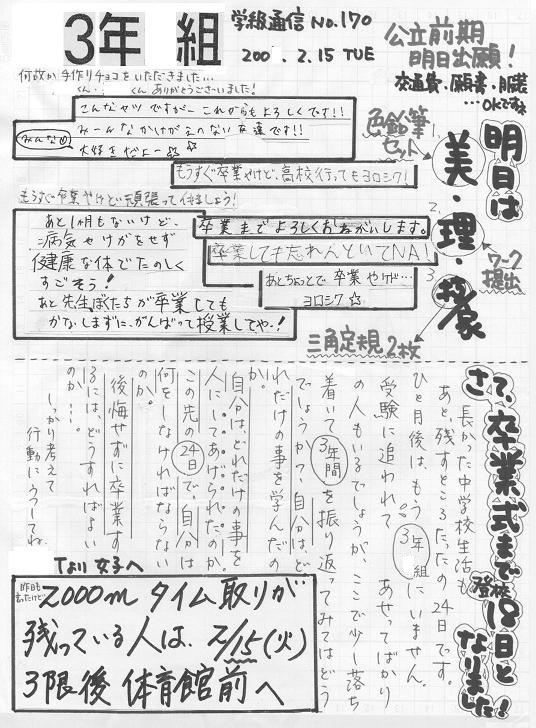 3年 組
学級通信 No.170
200 . 2.15 TUE
公立前期
明日出願!
交通費・願書・服装
…OKですね
何故か手作りチョコをいただきました…
くん、 くん ありがとうございました!
こんなヤツですが これからもよろしくです!!
みーんなかけがえのない友達です!!
みんな
大好きだよー☆☆
もうすぐ卒業やけど、高校行ってもヨロシク!
もうすぐ卒業やけど頑張って行きましょう!
あと1ヶ月もないけど、
病気やけがをせず
健康な体でたのしく
すごそう!
あと先生、ぼくたちが卒業しても
かなしまずに、がんばって授業してや〜!
卒業までよろしくおねがいします。
卒業しても忘れんといてNA!
あとちょっとで卒業やけど…
ヨロシク☆
明日は
1. 美・
2. 理・
3.
色鉛筆
セット
ワーク
提出
三角定規2枚
さて、卒業式まで
登校18日と
なりました!
長かった中学校生活も
あと残すところたったの24日です。
ひと月後は、もう3年 組にいません。
受験に追われて あせってばかり
の人もいるでしょうが、ここで少し落ち
着いて3年間を振り返ってみてはどう
でしょうか?自分は、ど
れだけの事を学んだの
か。
自分は、どれだけの事を
人にしてあげられたのか。
この先の24日で、自分は
何をしなければならない
のか。
後悔せずに卒業す
るには、どうすればよい
のか…
しっかり考えて
行動にうつしてね。
Tより 女子へ
昨日も
言ったけど
2000m タイム取りが
残っている人は、2/15(火)
3限後 体育館前へ